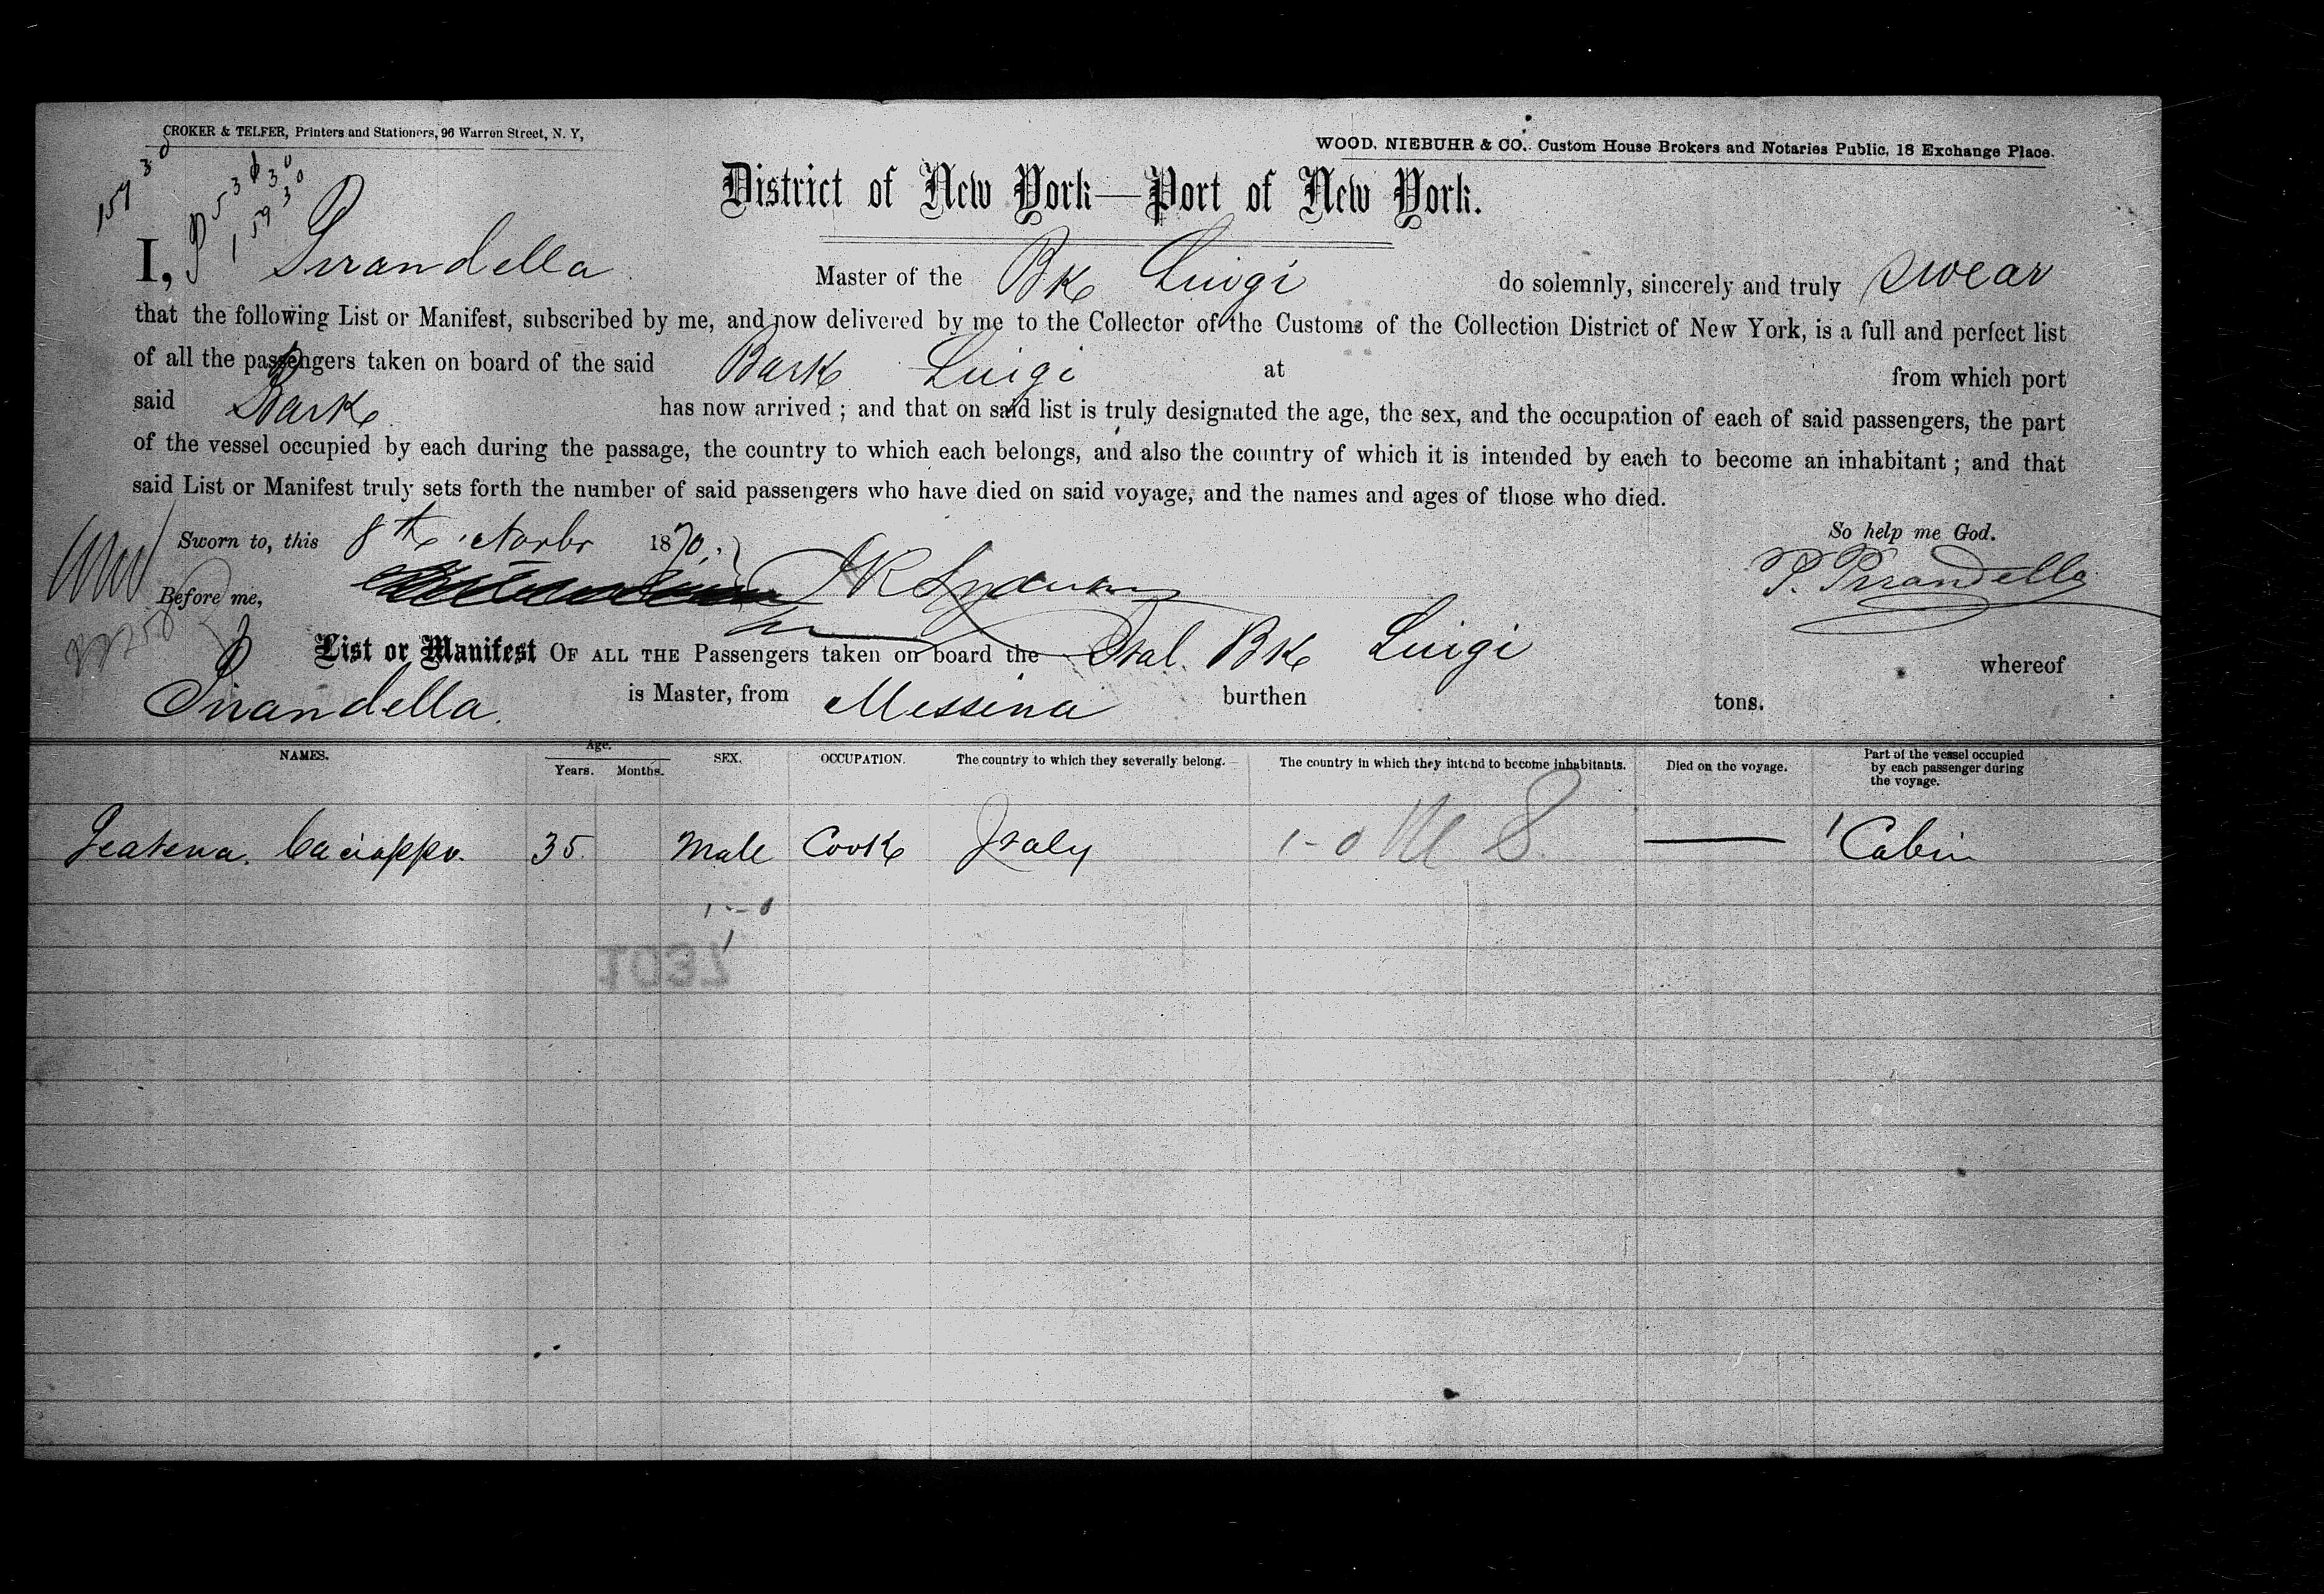 CROKER & TELFER, Printers and Stationers, 96 Warren Street, N. Y,
WOOD, NIEBUHR & CO., Custom House Brokers and Notaries Public, 18 Exchange Place.
District of New York—Port of New York.
I, P Pirandella Master of the Bk Luigi do solemnly, sincerely and truly swear
that the following List or Manifest, subscribed by me, and now delivered by me to the Collector of the Customs of the Collection District of New York, is a full and perfect list
of all the passengers taken on board of the said Bark Luigi at from which port
said Bark has now arrived ; and that on said list is truly designated the age, the sex, and the occupation of each of said passengers, the part
of the vessel occupied by each during the passage, the country to which each belongs, and also the country of which it is intended by each to become an inhabitant ; and that
said List or Manifest truly sets forth the number of said passengers who have died on said voyage, and the names and ages of those who died.
Sworn to, this 8th Novbr 1870. So help me God.
Before me, P. Pirandello
List or Manifest OF ALL THE Passengers taken on board the Ital. Bk Luigi whereof
P Pirandella. is Master, from Messina burthen tons.
NAMES. Age. Years. Months. SEX. OCCUPATION. The country to which they severally belong. The country in which they intend to become inhabitants. Died on the voyage. Part of the vessel occupied by each passenger during the voyage.
35. Male Cook Italy 1-0 — Cabin
1-0
1